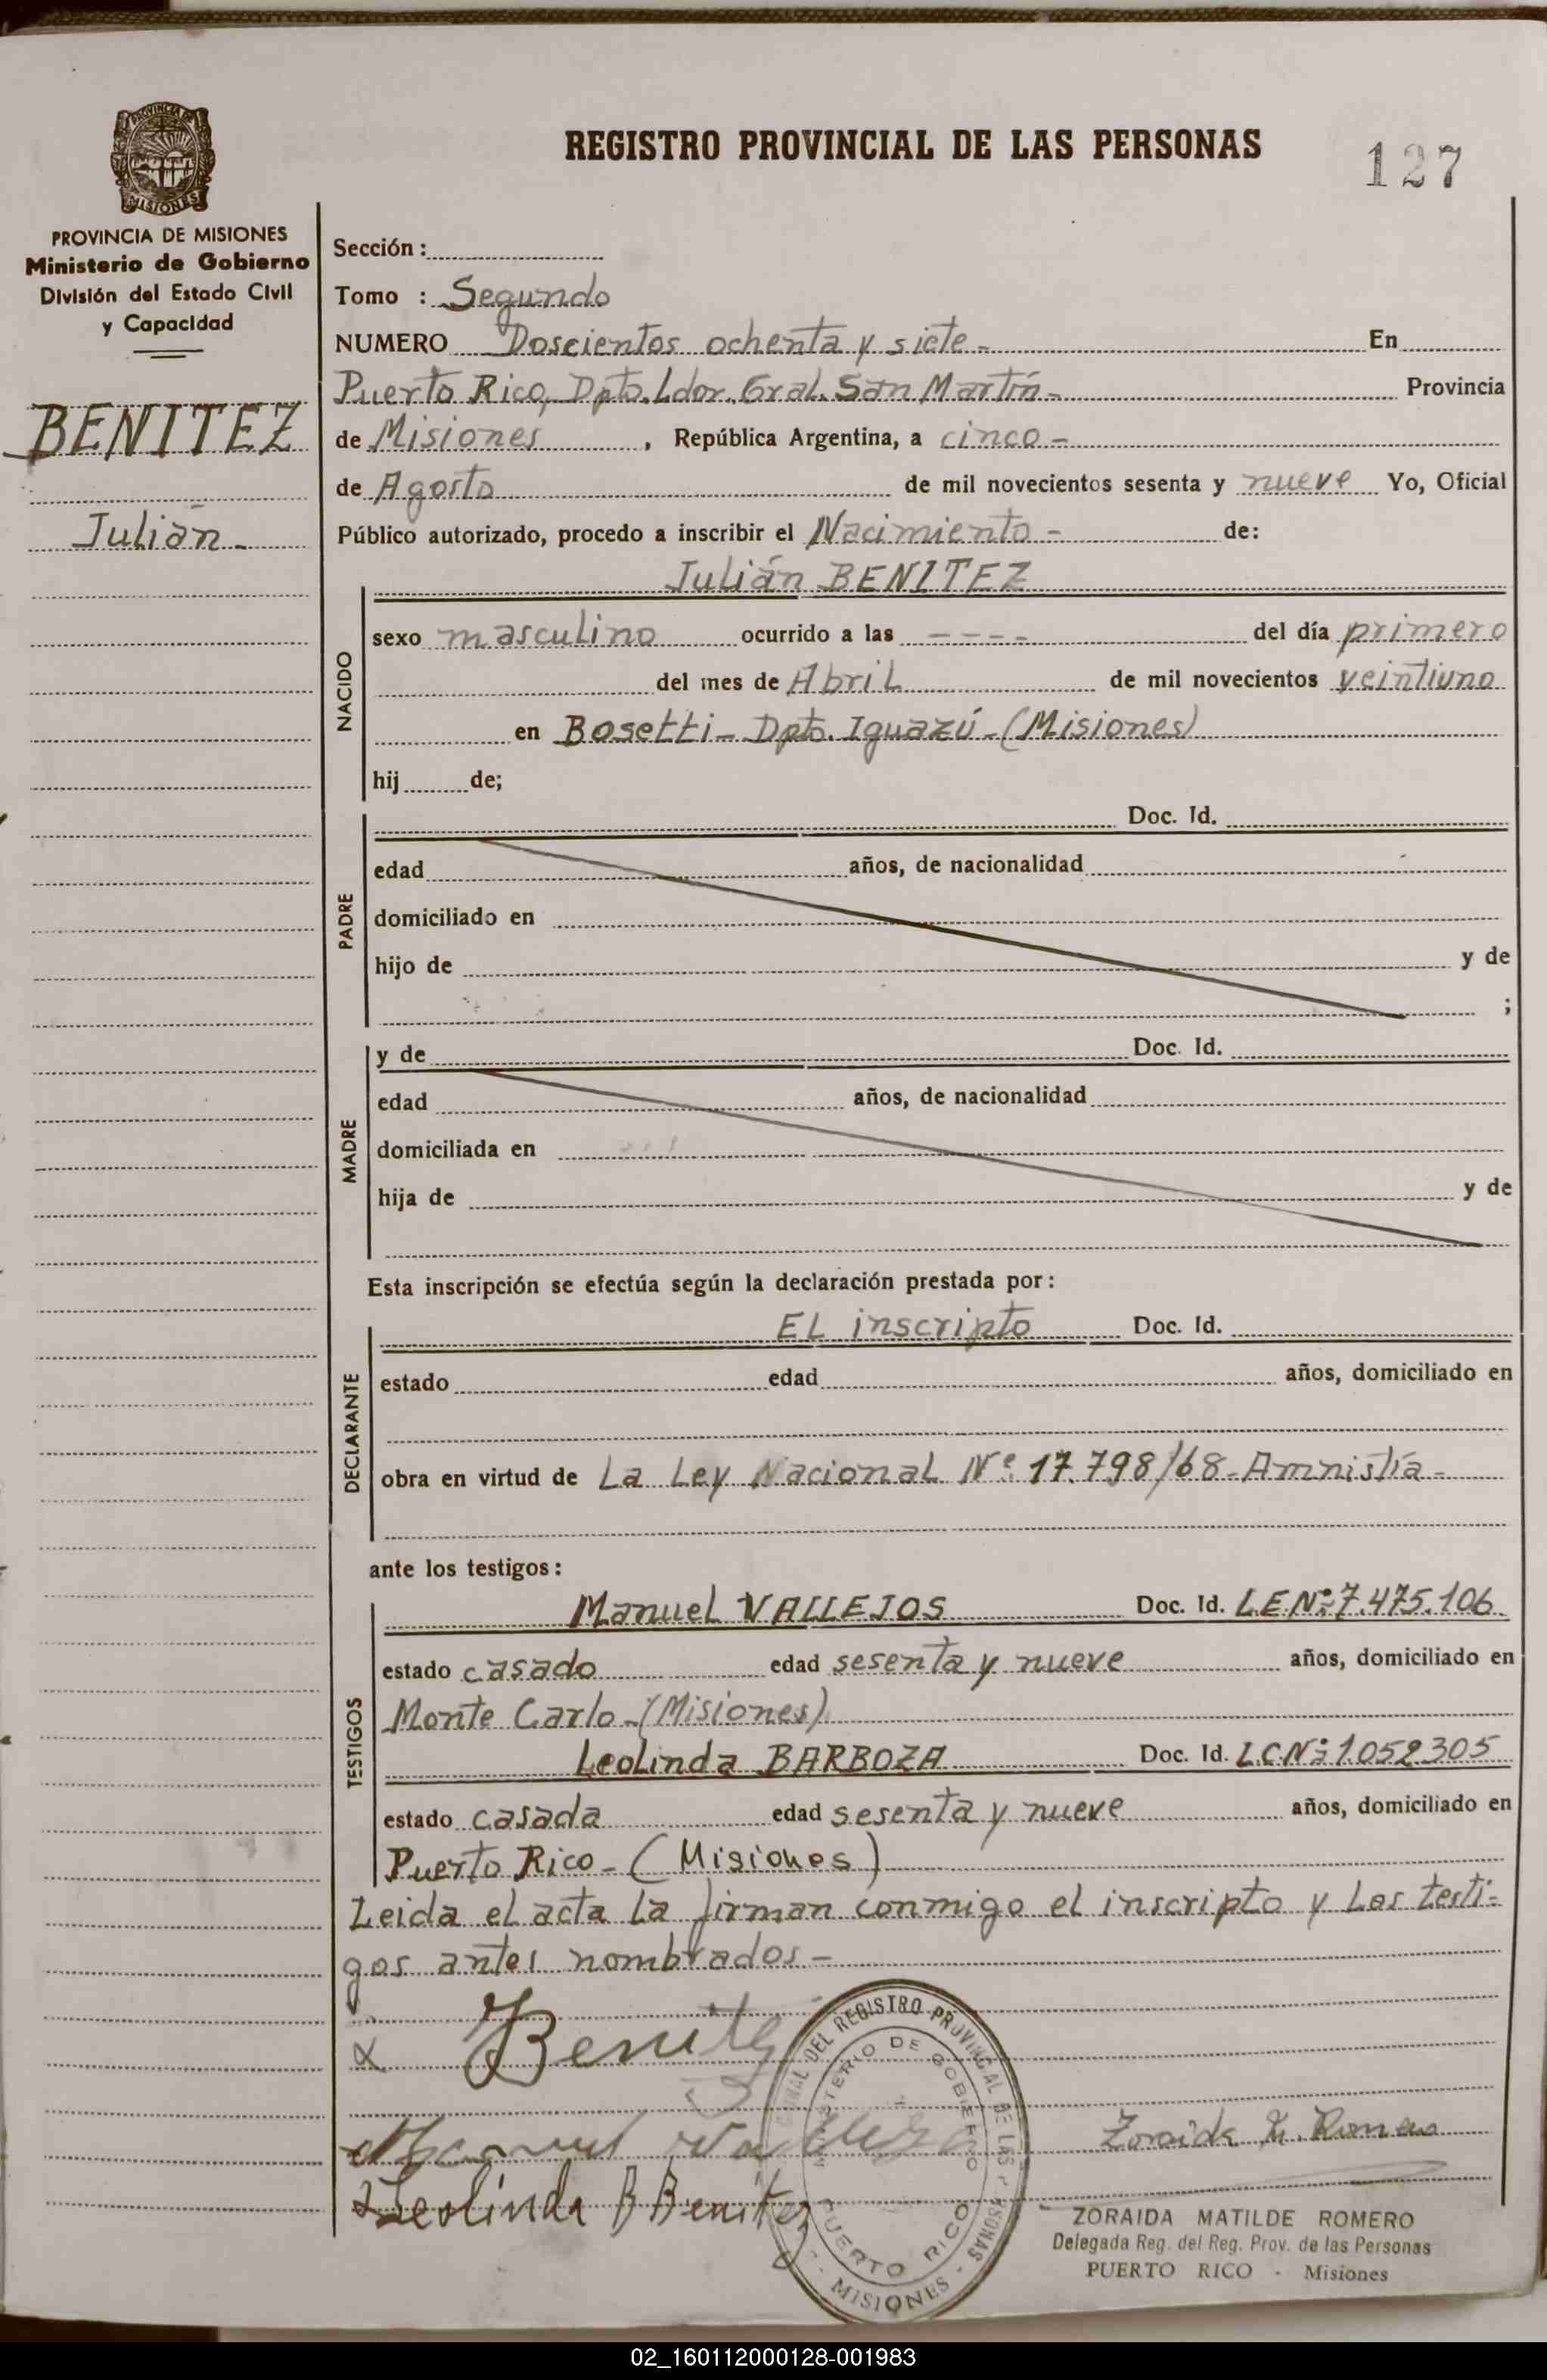 REGISTRO PROVINCIAL DE LAS PERSONAS
127
PROVINCIA DE MISIONES
MISIONES
PROVINCIA DE MISIONES
Ministerio de Gobierno
División del Estado Civil
y Capacidad
BENITEZ
Julián -
Sección :
Tomo : Segundo
NUMERO Doscientos ochenta y siete - En
Puerto Rico, Dpto. Ldor. Gral. San Martín - Provincia
de Misiones , República Argentina, a cinco -
de Agosto de mil novecientos sesenta y nueve Yo, Oficial
Público autorizado, procedo a inscribir el Nacimiento - de:
Julián BENITEZ
NACIDO
sexo masculino ocurrido a las ---- del día primero
del mes de Abril de mil novecientos veintiuno
en Bosetti - Dpto. Iguazú - (Misiones)
hij de;
PADRE
Doc. Id.
edad años, de nacionalidad
domiciliado en
hijo de y de
;
MADRE
y de Doc. Id.
edad años, de nacionalidad
domiciliada en
hija de y de
Esta inscripción se efectúa según la declaración prestada por :
DECLARANTE
EL inscripto Doc. Id.
estado edad años, domiciliado en
obra en virtud de La Ley Nacional Nº 17.798/68 - Amnistía -
ante los testigos :
TESTIGOS
Manuel VALLEJOS Doc. Id. L.E.Nº 7.475.106
estado casado edad sesenta y nueve años, domiciliado en
Monte Carlo - (Misiones)
Leolinda BARBOZA Doc. Id. L.C.Nº 1.052305
estado casada edad sesenta y nueve años, domiciliado en
Puerto Rico - (Misiones)
Leida el acta la firman conmigo el inscripto y los testi=
gos antes nombrados -
Benitez
Manuel Vallejo
Leolinda B Benitez
DEL REGISTRO PROVINCIAL DE LAS PERSONAS
MINISTERIO DE GOBIERNO
PUERTO RICO
- MISIONES -
Zoraida M. Romero
ZORAIDA MATILDE ROMERO
Delegada Reg. del Reg. Prov. de las Personas
PUERTO RICO - Misiones
02_160112000128-001983